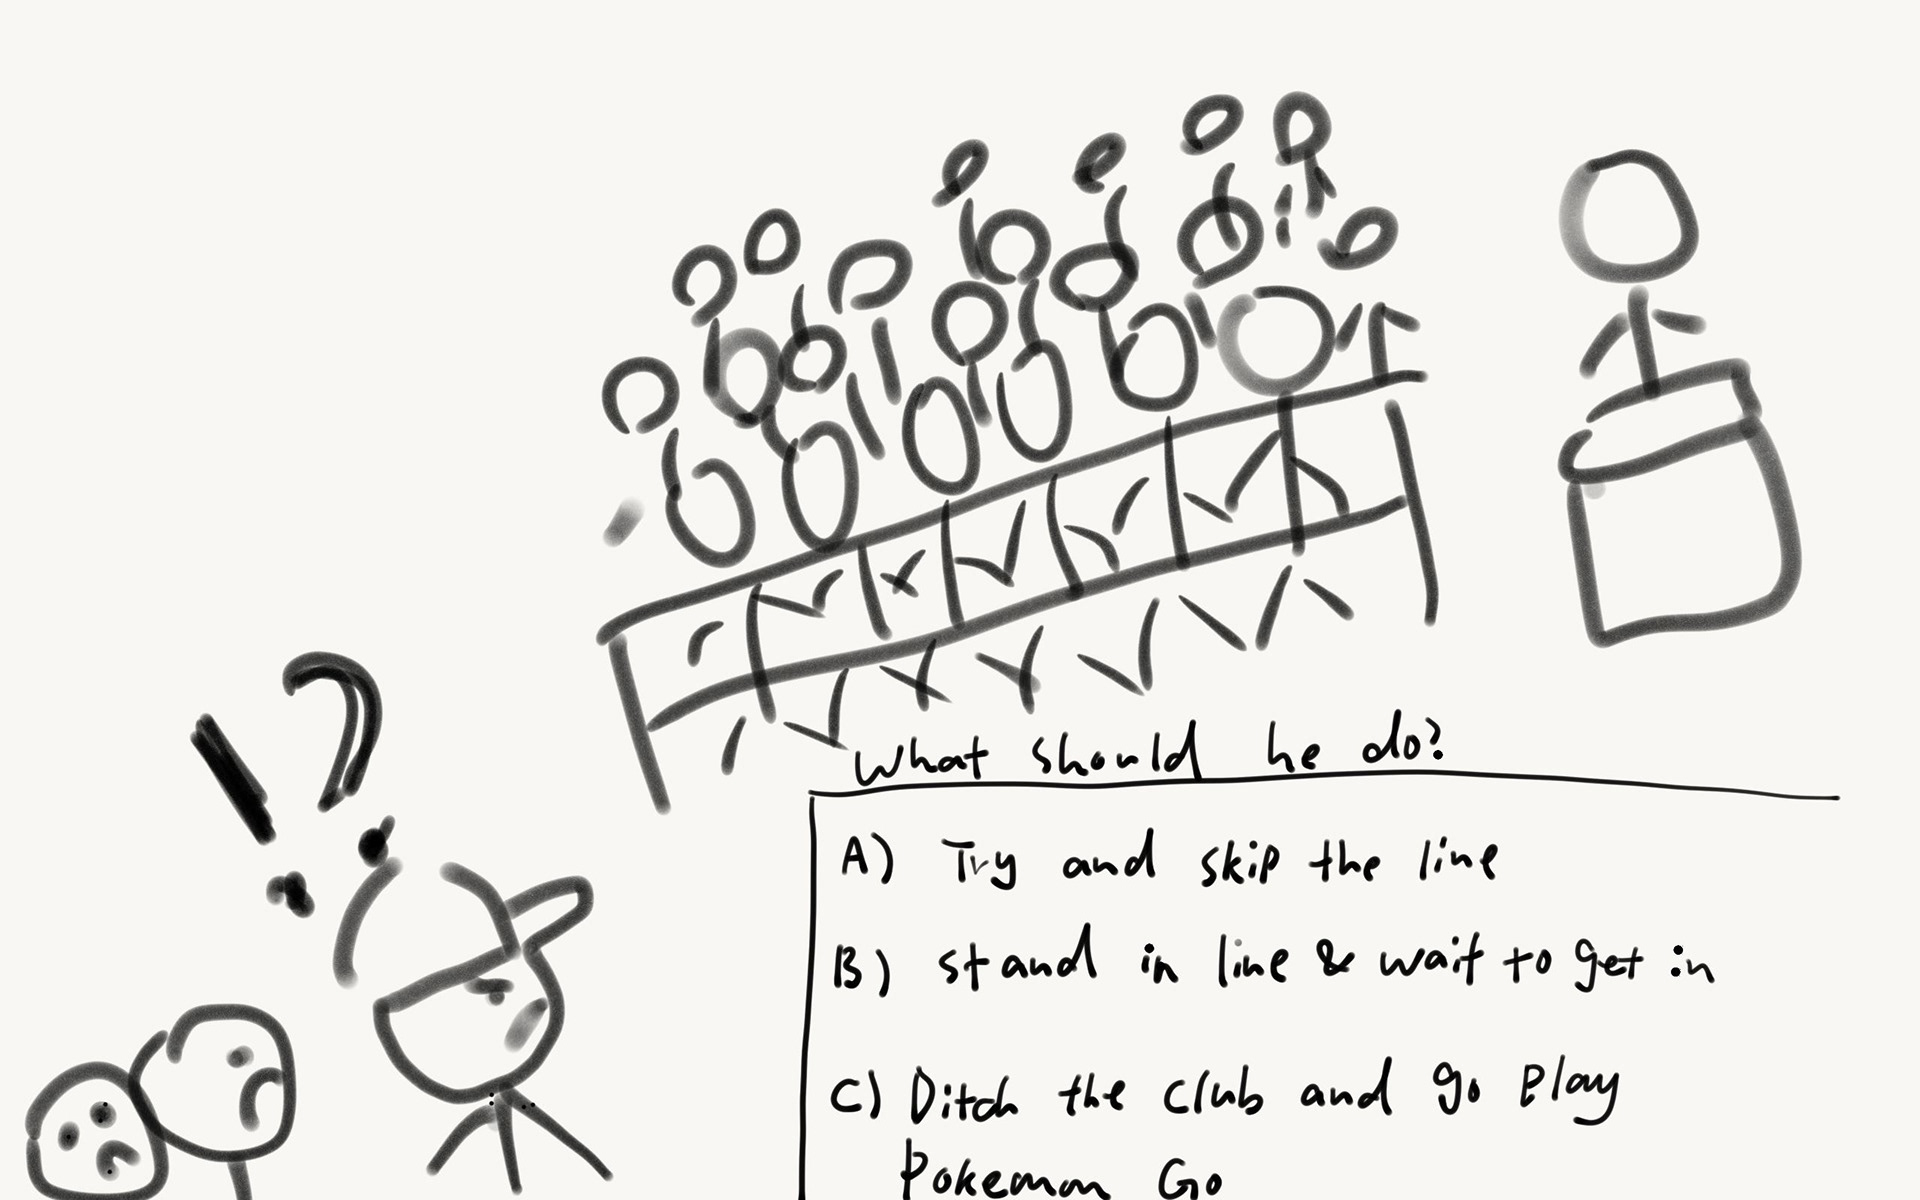 !?
What should he do?
A) Try and skip the line
B) stand in line & wait to get in
C) Ditch the club and go Play
Pokemon Go